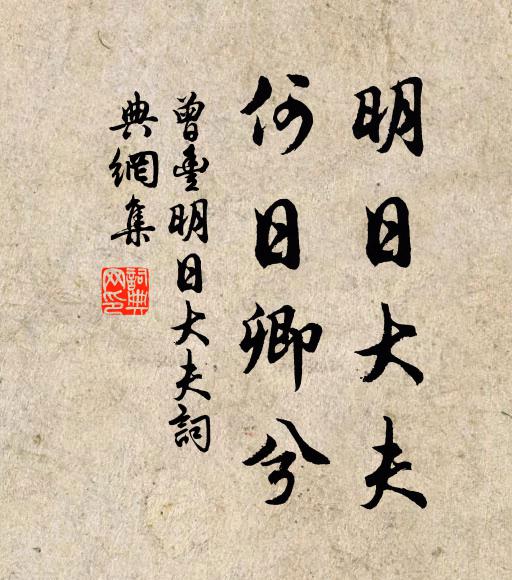 明日大夫
何日卿兮
曾豐明日大夫詞
典網集
詞典
网印